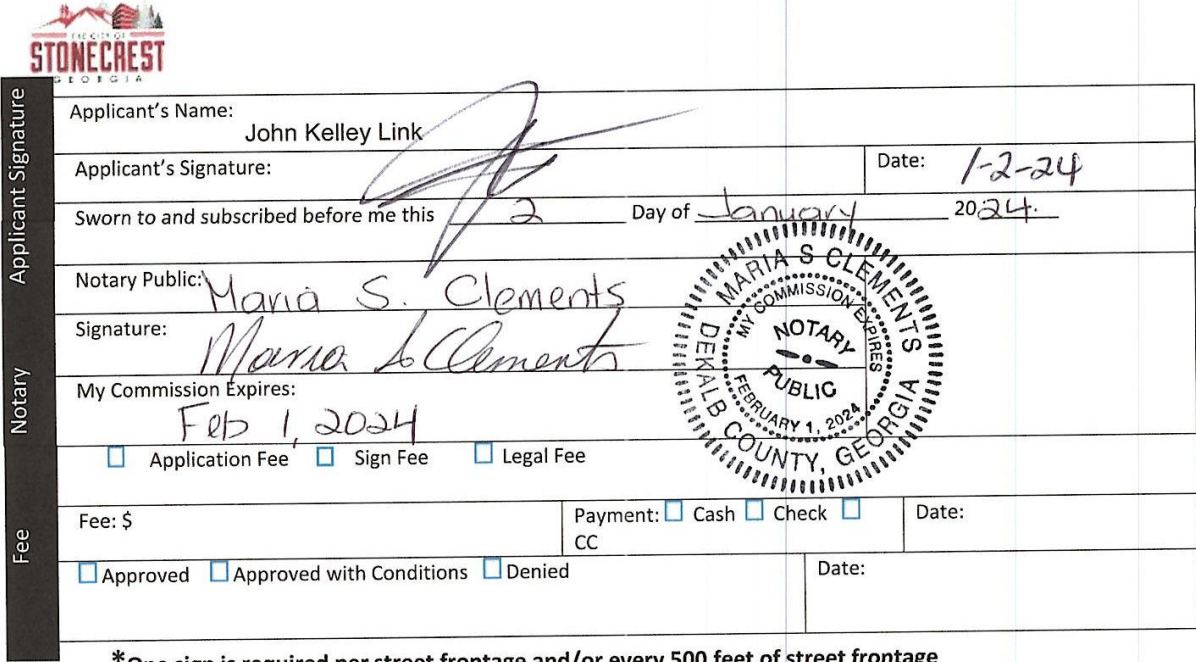 THE CITY OF
STONECREST
GEORGIA
Applicant Signature
Applicant's Name:
John Kelley Link
Applicant's Signature:
Date: 1-2-24
Sworn to and subscribed before me this 2 Day of January 2024.
Notary
Notary Public: Maria S. Clements
Signature: Maria S Clements
My Commission Expires:
Feb 1, 2024
MARIA S CLEMENTS
DEKALB COUNTY, GEORGIA
MY COMMISSION EXPIRES
FEBRUARY 1, 2024
NOTARY
PUBLIC
Application Fee Sign Fee Legal Fee
Fee
Fee: $
Payment: Cash Check
CC
Date:
Approved Approved with Conditions Denied
Date:
*One sign is required per street frontage and/or every 500 feet of street frontage